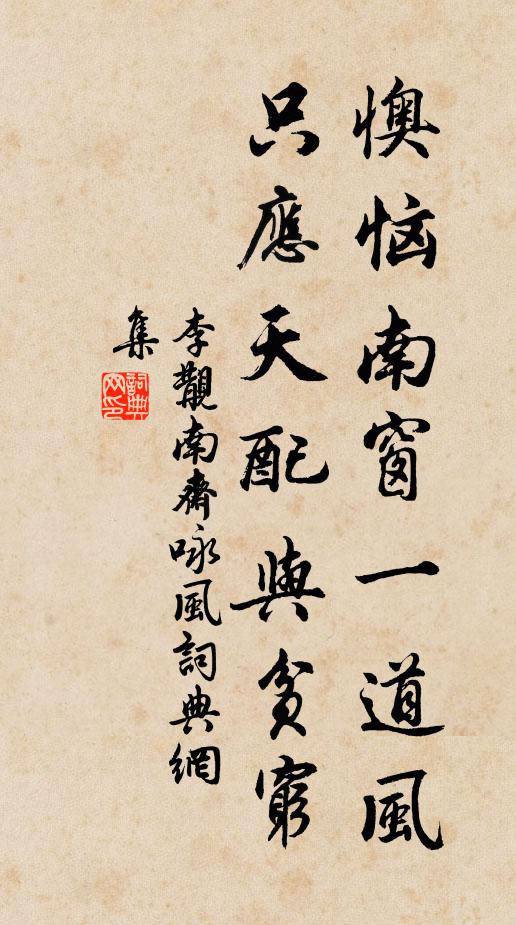 懊恼南窗一道風
只應天配與貧窮
李覯南齋咏風詞典網
集
詞典
网印